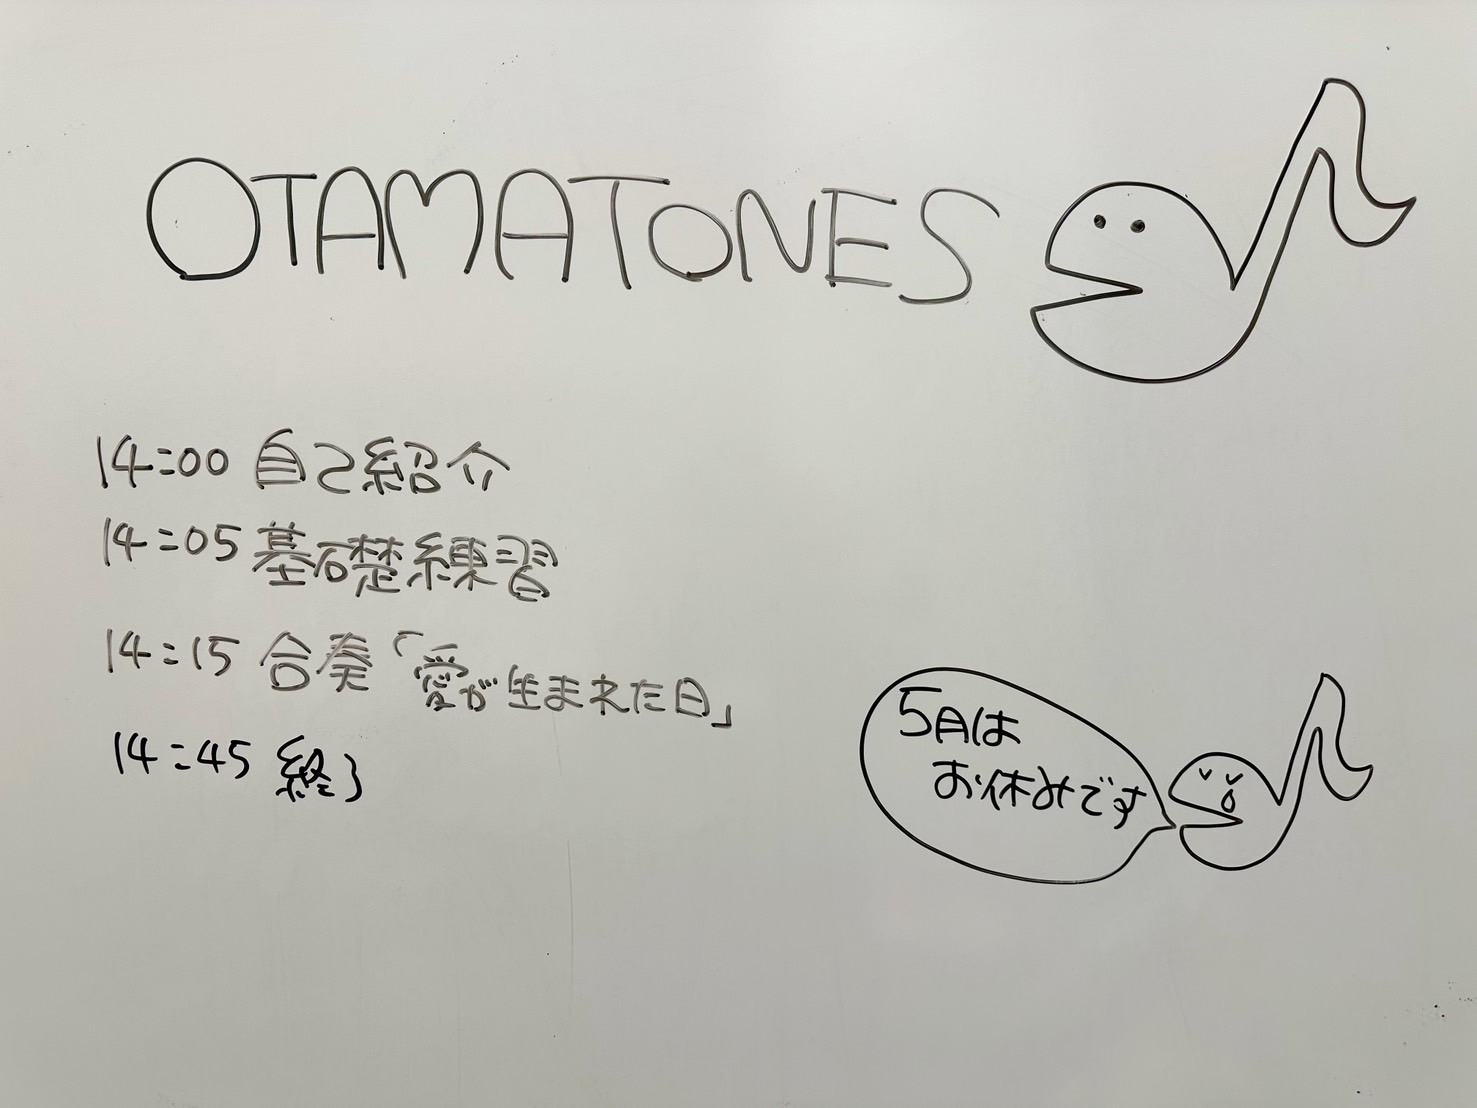 OTAMATONES
14:00 自己紹介
14:05 基礎練習
14:15 合奏「愛が生まれた日」
14:45 終了
5月は
お休みです